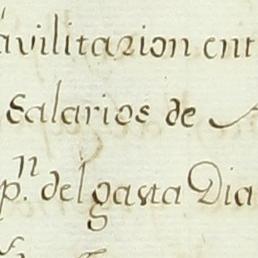 avilitazion ent
Salarios de
p.n del gasta Dia